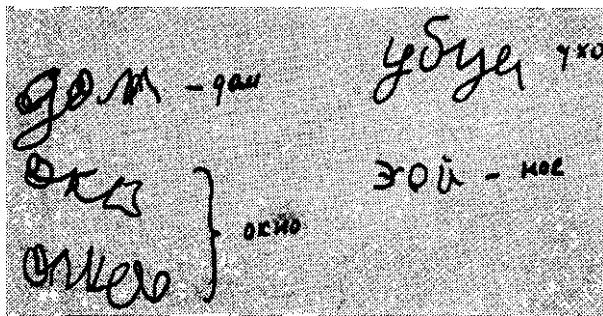 дом - дом
око
окно
онсе
убуц ухо
эой - нос